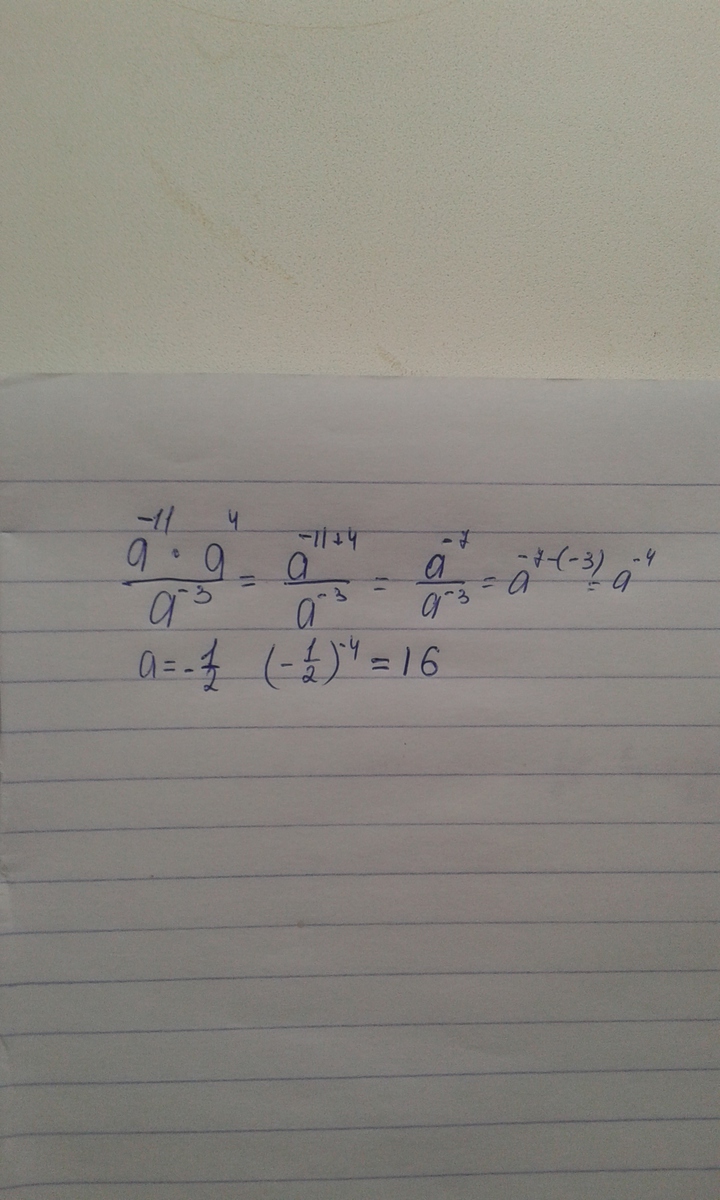 a^-11 · a^4 / a^-3 = a^-11+4 / a^-3 = a^-7 / a^-3 = a^-7-(-3) = a^-4
a = -1/2 (-1/2)^-4 = 16